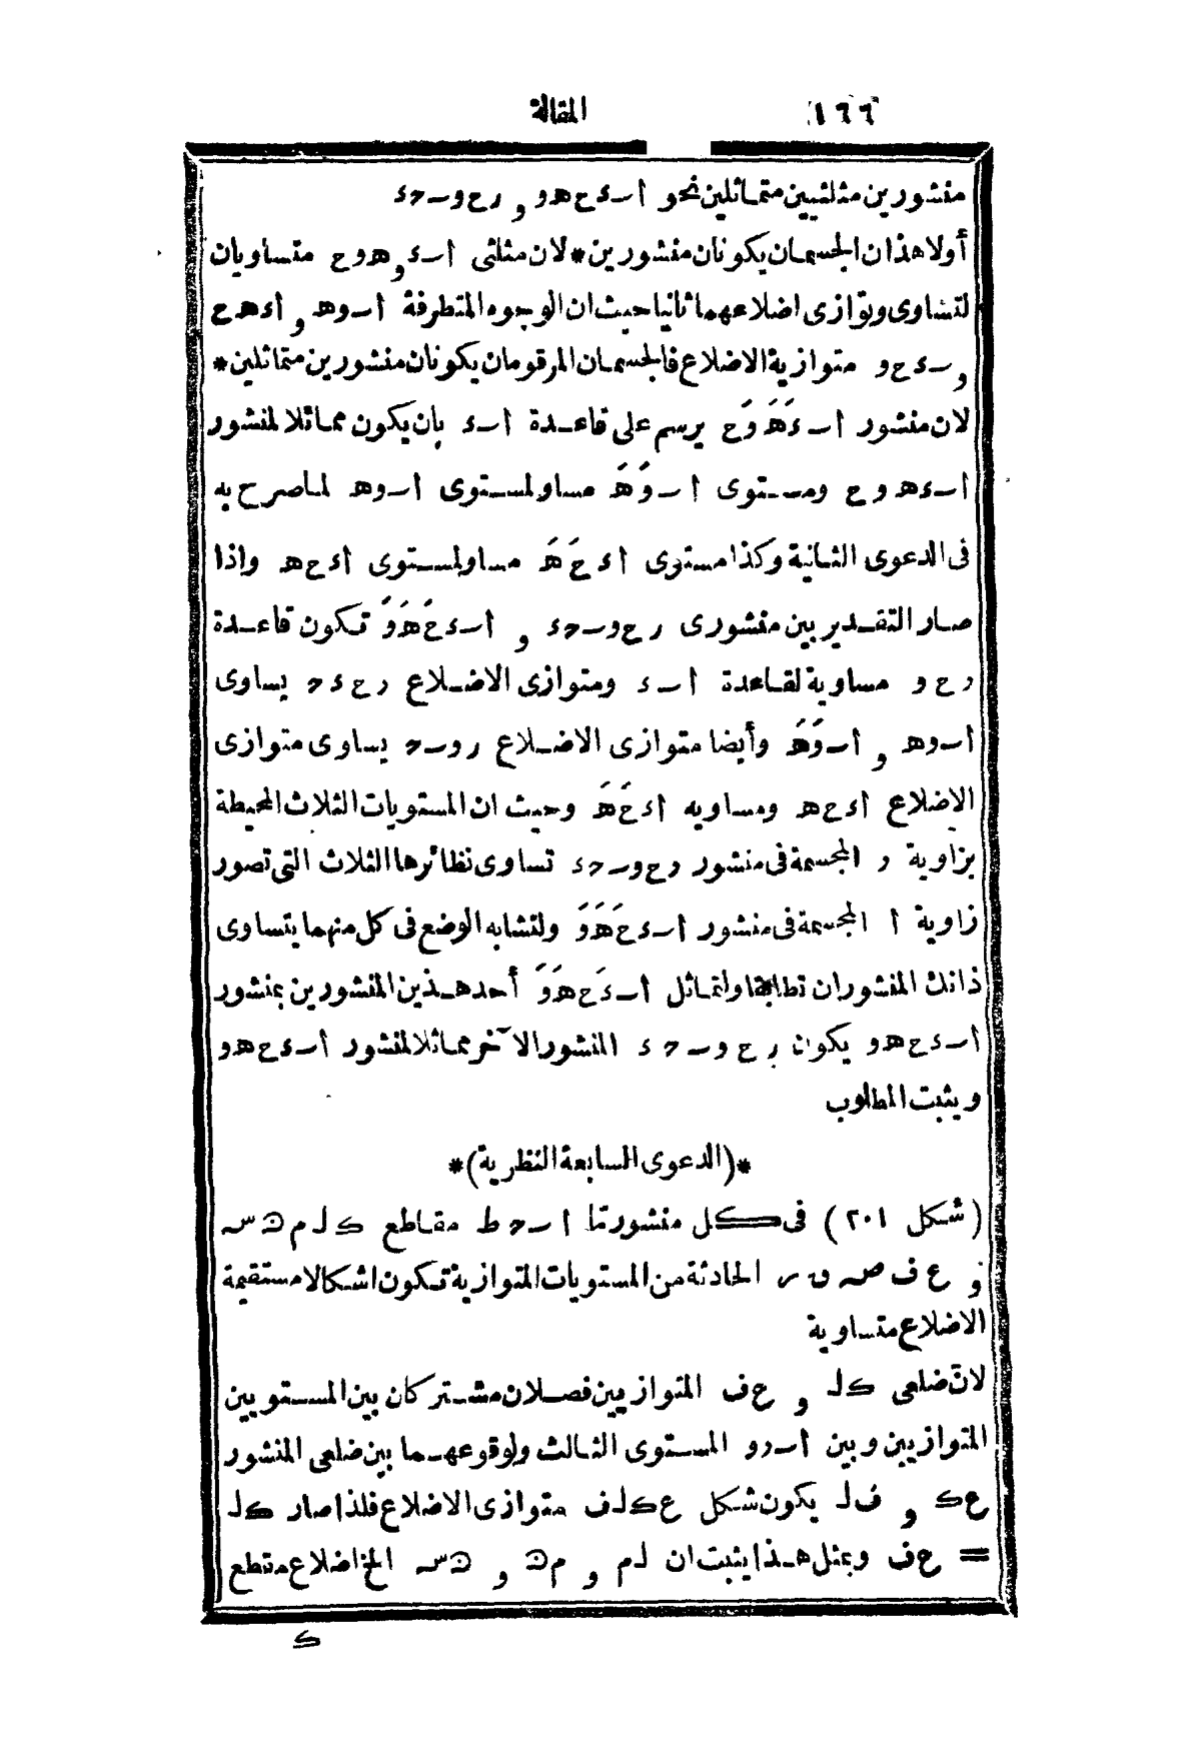 ١٦٦ المقالة
منشورين مثلثيين متماثلين نحو ا ـ ء ح ه و و ر ح و ـ ح ء
أولا هذان الجسمان يكونان منشورين * لان مثلثى ا ـ ء و ه و ح متساويان
لتساوى وتوازى اضلاعهما ثانيا حيث ان الوجوه المتطرفة ا ـ و ه و ا ء ه ح
و ـ ء ح و متوازية الاضلاع فالجسمان المرقومان يكونان منشورين متماثلين *
لان منشور ا ـ ءَ هَ وَ ح يرسم على قاعدة ا ـ ء بان يكون مماثلا لمنشور
ا ـ ء ه و ح ومستوى ا ـ وَ هَ مساو لمستوى ا ـ و ه لما صرح به
فى الدعوى الثانية وكذا مستوى ا ء حَ هَ مساو لمستوى ا ء ح ه واذا
صار التقدير بين منشورى ر ح و ـ ح ء و ا ـ ء حَ هَ وَ تكون قاعدة
ر ح و مساوية لقاعدة ا ـ ء ومتوازى الاضلاع ر ح ء ح يساوى
ا ـ و ه و ا ـ وَ هَ وأيضا متوازى الاضلاع ر و ـ ح يساوى متوازى
الاضلاع ا ء ح ه ومساويه ا ء حَ هَ وحيث ان المستويات الثلاث المحيطة
بزاوية ر المجسمة فى منشور ر ح و ـ ح ء تساوى نظائرها الثلاث التى تصور
زاوية ا المجسمة فى منشور ا ـ ء حَ هَ وَ ولتشابه الوضع فى كل منهما يتساوى
ذانك المنشوران تطابقا ولتماثل ا ـ ءَ ح هَ وَ أحد هذين المنشورين بمنشور
ا ـ ء ح ه و يكون ر ح و ـ ح ء المنشور الآخر مماثلا لمنشور ا ـ ء ح ه و
ويثبت المطلوب
*(الدعوى السابعة النظرية)*
(شكل ٢٠١) فى كل منشور تا ا ـ ح ط مقاطع ك ل م ن س
و ع ف ص ق ر الحادثة من المستويات المتوازية تكون اشكالا مستقيمة
الاضلاع متساوية
لان ضلعى ك ل و ع ف المتوازيين فصلان مشتركان بين المستويين
المتوازيين وبين ا ـ ر و المستوى الثالث ولوقوعهما بين ضلعى المنشور
ع ك و ف ل يكون شكل ع ك ل ف متوازى الاضلاع فلذا صار ك ل
= ع ف وبمثل هذا يثبت ان ل م و م ن و ن س الخ اضلاع مقطع
ك